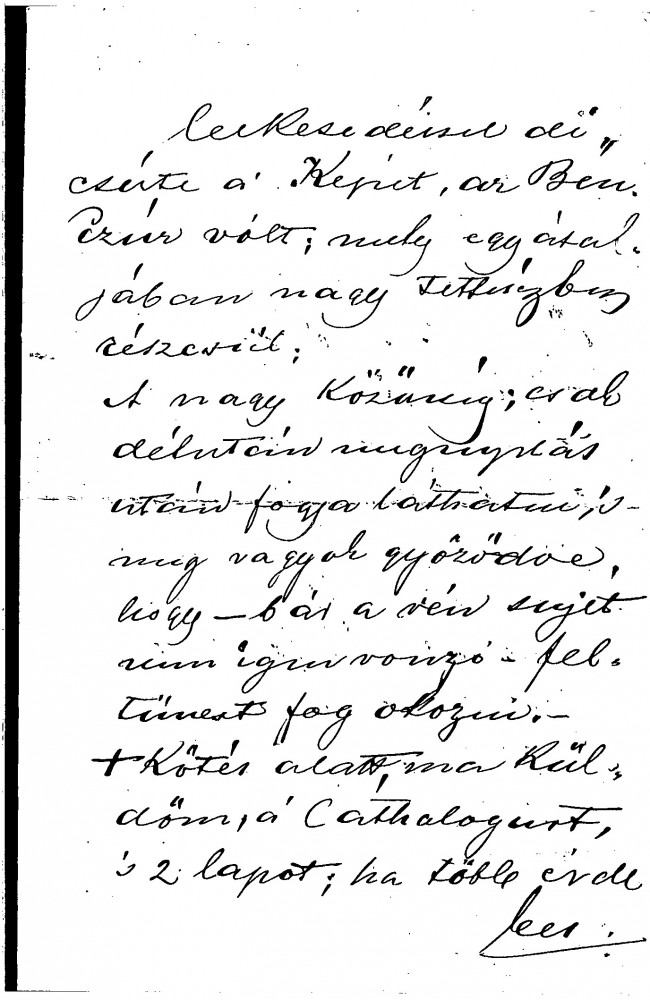 lelkesedéssel di„
csérte á Képet, az Ben.
Czúr vólt; mely egyátal„
jában nagy Tettszésben
részesült;
A nagy Közönség; csak
délután megnyitás
után fogja láthatni, 's
meg vagyok győződve,
hogy – bár a vén sujet
nem igen vonzó – fel„
tünest fog okozni. –
+ Kötés álatt, ma Kül„
döm, á Cathalogust,
's 2 lapot; ha több érde
kes.